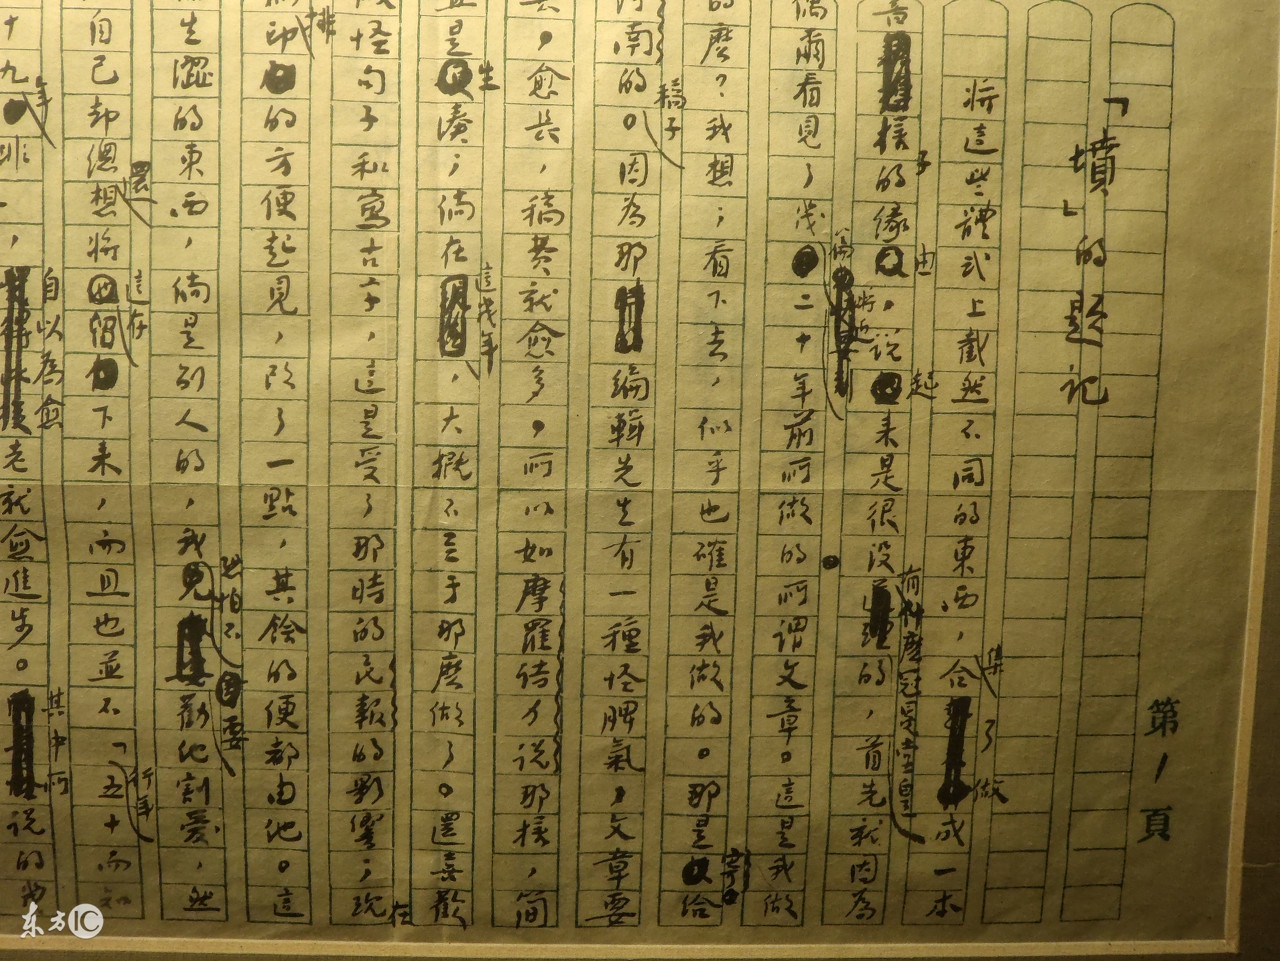 第1頁
「墳」的題記
將這些體式上截然不同的東西，合集了做成一本
樣子的緣由，說起來是很沒有什麼冠冕堂皇的，首先就因為
偶爾看見了幾篇將近二十年前所做的所謂文章。這是我做
的麼？我想；看下去，似乎也確是我做的。那是寄給
河南的稿子。因為那編輯先生有一種怪脾氣，文章要
長，愈長，稿費就愈多。所以如摩羅詩力說那樣，簡
直是生湊；倘在這幾年，大概不至于那麼做了。還喜歡
做怪句子和寫古字，這是受了那時的民報的影響；現在
排印的方便起見，改了一點，其餘的便都由他。這
生澀的東西，倘是別人的，我恐怕不免要勸他割愛，然
自己却總還想將這存留下來，而且也並不「行年五十而知
十九年非」，自以為愈老就愈進步。其中所說的